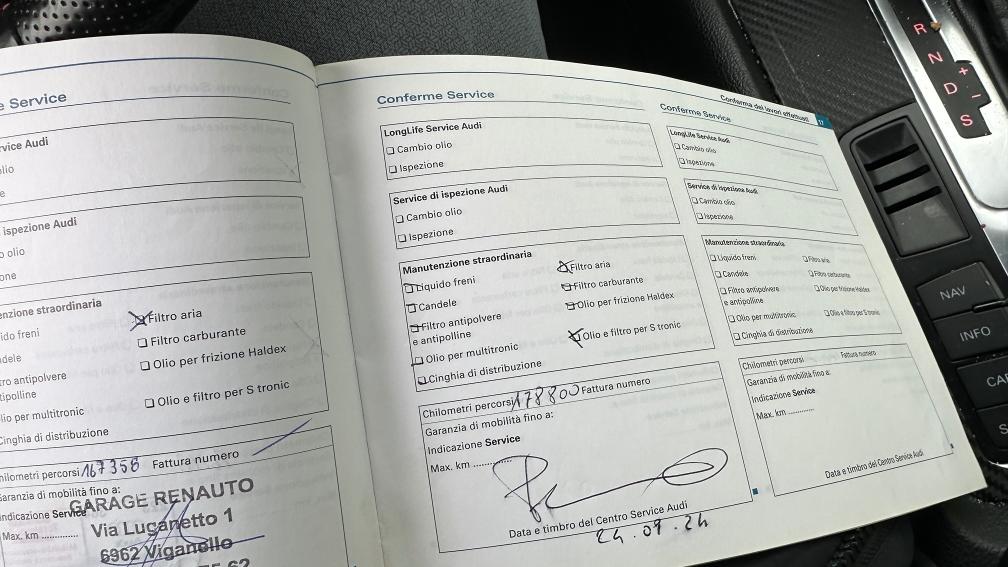 e Service
rvice Audi
olio
ne
ispezione Audi
o olio
one
enzione straordinaria
ido freni
Filtro aria
ndele
Filtro carburante
ro antipolvere
tipolline
Olio per frizione Haldex
lio per multitronic
Olio e filtro per S tronic
Cinghia di distribuzione
hilometri percorsi 167358 Fattura numero
Garanzia di mobilità fino a:
ndicazione Service
Max. km ............
GARAGE RENAUTO
Via Luganetto 1
6962 Viganello
Conferme Service
LongLife Service Audi
Cambio olio
Ispezione
Service di ispezione Audi
Cambio olio
Ispezione
Manutenzione straordinaria
Liquido freni
Filtro aria
Candele
Filtro carburante
Filtro antipolvere
e antipolline
Olio per frizione Haldex
Olio per multitronic
Olio e filtro per S tronic
Cinghia di distribuzione
Chilometri percorsi 178800 Fattura numero
Garanzia di mobilità fino a:
Indicazione Service
Max. km ............
Data e timbro del Centro Service Audi
24.09.24
Conferma dei lavori effettuati 17
Conferme Service
LongLife Service Audi
Cambio olio
Ispezione
Service di ispezione Audi
Cambio olio
Ispezione
Manutenzione straordinaria
Liquido freni
Filtro aria
Candele
Filtro carburante
Filtro antipolvere
e antipolline
Olio per frizione Haldex
Olio per multitronic
Olio e filtro per S tronic
Cinghia di distribuzione
Chilometri percorsi Fattura numero
Garanzia di mobilità fino a:
Indicazione Service
Max. km ............
Data e timbro del Centro Service Audi
R
N
D + -
S
NAV
INFO
CA
S